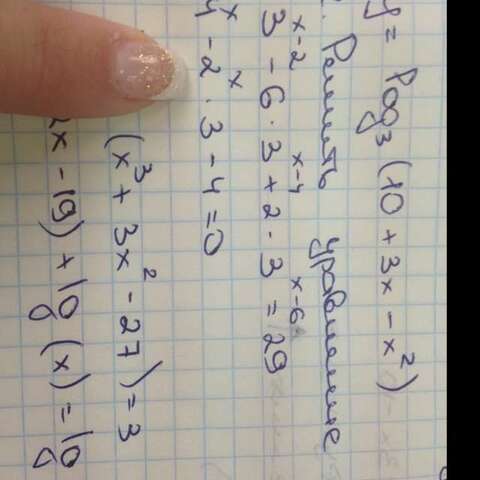 y = log₃ (10 + 3x - x²)
Решить уравнение
3ˣ⁻² - 6 · 3ˣ⁻⁴ + 2 · 3ˣ⁻⁶ = 29
4ˣ - 2ˣ · 3 - 4 = 0
(x³ + 3x² - 27) = 3
2x - 19) + lg (x) = lg